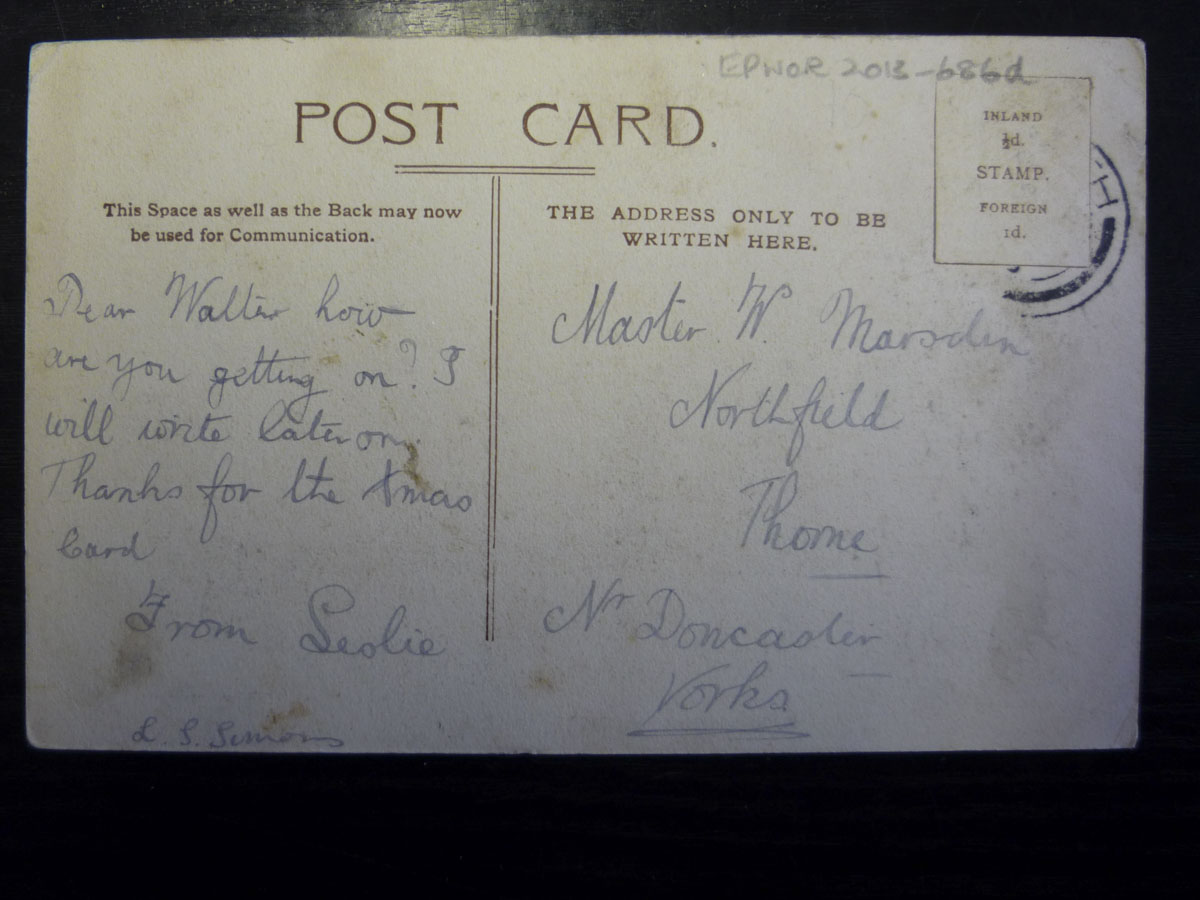 EPWOR 2013-686d
POST CARD.
INLAND
½d.
STAMP.
FOREIGN
1d.
H
This Space as well as the Back may now
be used for Communication.
THE ADDRESS ONLY TO BE
WRITTEN HERE.
Dear Walter how
are you getting on? I
will write later on.
Thanks for the Xmas
Card
From Leslie
L. S. Simons
Master W. Marsden
Northfield
Thorne
Nr Doncaster
Yorks